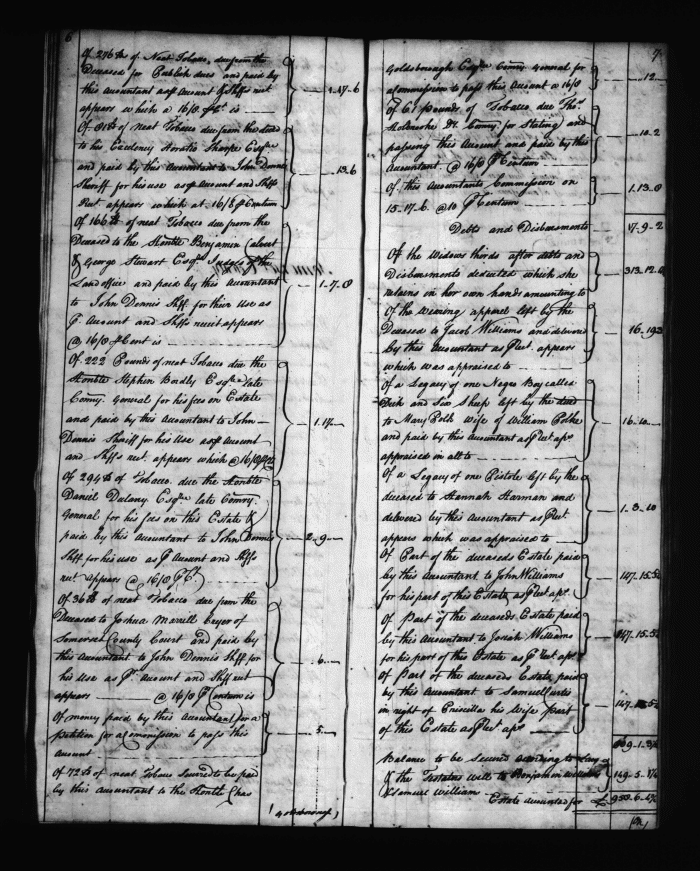 6
Of 276 lb of Neat Tobacco, due from the
Deceased for Publick dues and paid by
this Accountant as Account & Sheriffs rect
appears which @ 16/8 is 1..17..6
Of 81 lb of neat Tobacco due from the deced
to his Excelency Horatio Sharpe Esqr
and paid by this Accountant to John Dennis
Sheriff for his use as Account and Shffs
Rect appears which at 16/8 Centum 13..6
Of 166 lb of neat Tobacco due from the
Deceased to the Honble Benjamin
& George Stewart Esqrs Judges of the
Land office and paid by this Accountant
to John Dennis Shff. for their Use as
Account and Shffs receit appears
@ 16/8 Cent is 1..7..8
Of 222 Pounds of neat Tobacco due the
Honble Stephen Bordly Esqr late
Comry. General for his fees on Estate
and paid by this Accountant to John
Dennis Sheriff for his Use as Account
and Shffs rect. appears which @ 16/8
Of 294 lb of Tobacco due the Honble
Daniel Dulany Esqr late Comry.
General for his fees on this Estate &
paid by this Accountant to John Dennis
Shff for his use as Account and Shffs
rect appears @ 16/8 2..9
Of 36 lb of neat Tobacco due from the
Deceased to Joshua Morrill cryer of
Somerset County Court and paid by
this Accountant to John Dennis Shff for
his Use as Account and Shff rect
appears @ 16/8 Centum is 6
Of money paid by this Accountant for a
petition for a Commission to pass this
Account 5
Of 72 lb of neat Tobacco Secured to be paid
by this Accountant to the Honble Chas
Goldsborough
7
Goldsborough Esqr Comry. General for
a Commission to pass this Account @ 16/8 12
Of 61 Pounds of Tobacco due Thos
Holbrooke Dt. Comry. for Stating and
passing this Account and paid by this
Accountant @ 16/8 Centum 10..2
Of this Accountants Commission on
15..17..6. @ 10 Centum 1..13..0
Debts and Disbursments 17..9..2
Of the Widows thirds after debts and
Disbursments deducted which she
retains in her own hands amounting to 313..12
Of the Wearing apparel left by the
Deceased to Jacob Williams and delivered
by this Accountant as Rect. appears
which was appraised to
Of a Legacy of one Negro Boy called
Dick and Six Sheep left by the deced
to Mary Polk Wife of William Polke
and paid by this Accountant as Rect aps
appraised in all to 16..10
Of a Legacy of one Pistole left by the
deceased to Hannah Harman and
delivered by this Accountant as Rect
appears which was appraised to 1..3..10
Of Part of the deceaseds Estate paid
by this Accountant to John Williams
for his part of this Estate as Rect aps. 147..15..5
Of part of the deceaseds Estate paid
by this Accountant to Josiah Williams
for his part of this Estate as Rect aps 147..15..5
Of Part of the deceaseds Estate paid
by this Accountant to Samuel Curtis
in right of Priscilla his Wife part
of this Estate as Rect aps
Balance to be Secured according to Law
& the Testators will to Benjamin Williams
& Samuel William
Estate Accounted for £